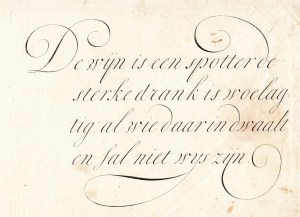 De wijn is een spotter de
sterke drank is woelag
tig al wie daar in dwaalt
en sal niet wys zijn